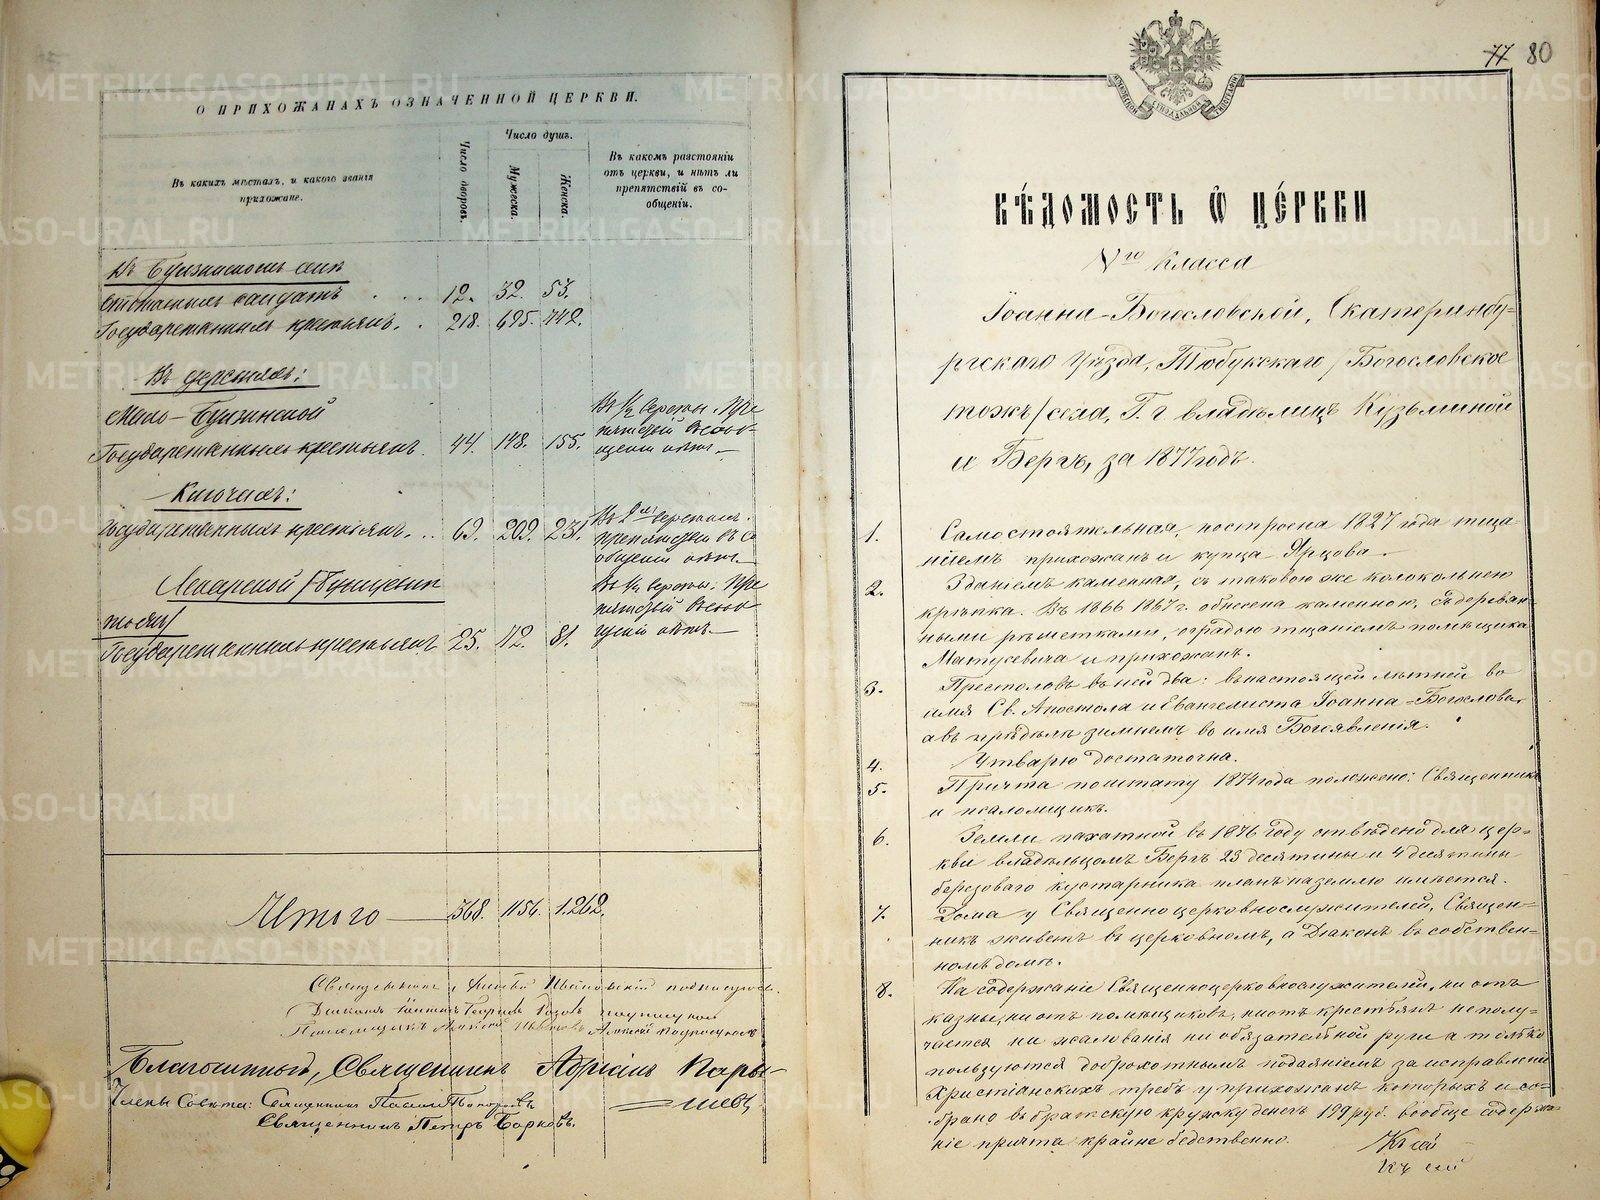 О ПРИХОЖАНАХЪ ОЗНАЧЕННОЙ ЦЕРКВИ.
Въ какихъ мѣстахъ, и какого званія
прихожане.
Число дворовъ.
Число душъ.
Мужеска.
Женска.
Въ какомъ разстояніи
отъ церкви, и нѣтъ ли
препятствій въ со-
общеніи.
12. 32. 53.
Государственныхъ крестьянъ. 218. 695. 742.
Въ деревняхъ:
Государственныхъ крестьянъ. 44. 148. 155.
Въ 1/2 версты. Пре
пятствій въ сооб-
щеніи нѣтъ.
Ключахъ:
Государственныхъ крестьянъ. 69. 209. 231.
Въ 2хъ верстахъ.
препятствій въ со
общеніи нѣтъ.
тожъ/
Государственныхъ крестьянъ 25. 72. 81.
Въ 1/2 версты. Пре
пятствій въ сооб
щеніи нѣтъ.
Итого 368. 1156. 1.262.
Благочинный, Священникъ Адріанъ Пары-
шевъ,
Члены Совѣта: Священникъ
Священникъ Петръ
77 80
ВѢДОМОСТЬ Ѡ ЦЕ́РКВИ
Vго класса
Іоанна-Богословской, Екатеринбу-
ргскаго уѣзда, Тюбукскаго /Богословское
тожъ/ села, Г. г владѣлицъ Кузьминой
и Бергъ, за 1877 годъ.
1. Самостоятельная, построена 1827 года тща-
ніемъ прихожанъ и купца Ярцова.
2. Зданіемъ каменная, съ таковою же колокольнею
крѣпка. Въ 1866 1867 г. обнесена каменною, съ деревян-
ными рѣшетками, оградою тщаніемъ помѣщика
Матусевича и прихожанъ.
3. Престоловъ въ ней два: въ настоящей лѣтней во
имя Св. Апостола и Евангелиста Іоанна-Богослова,
а въ придѣлѣ зимнемъ во имя Богоявленія.
4. Утварью достаточна.
5. Причта по штату 1874 года положено: Священникъ
и псаломщикъ.
6. Земли пахатной въ 1876 году отведено для цер-
кви владѣльцомъ Бергъ 23 десятины и 4 десятины
березоваго кустарника планъ на землю имѣется.
7. Дома у Священноцерковнослужителей, Священ-
никъ живетъ въ церковномъ, а Діаконъ въ собствен-
номъ домѣ.
8. На содержаніе Священноцерковнослужителей, ни отъ
казны, ни отъ помѣщиковъ, ни отъ крестьянъ не полу-
чается ни жалованія ни обязательной руги а только
пользуются доброхотнымъ подаяніемъ за исправленіе
Христіанскихъ требъ у прихожанъ которыхъ и со-
брано въ братскую кружку денегъ 199 руб. вообще содержа-
ніе причта крайне бѣдственно.
Къ сей
къ сей
METRIKI.GASO-URAL.RU